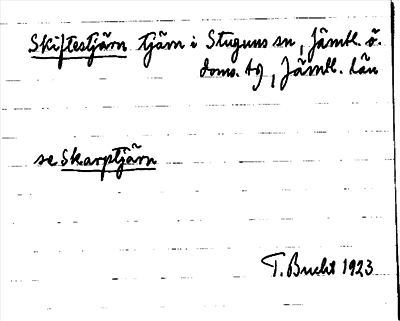 Skiftestjärn tjärn i Stuguns sn, Jämtl. ö.
doms. tg, Jämtl. län
se Skarptjärn
T. Bucht 1923